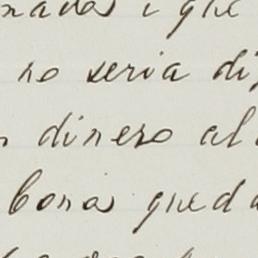 nadas i que
no seria di
n dinero al
Cona queda